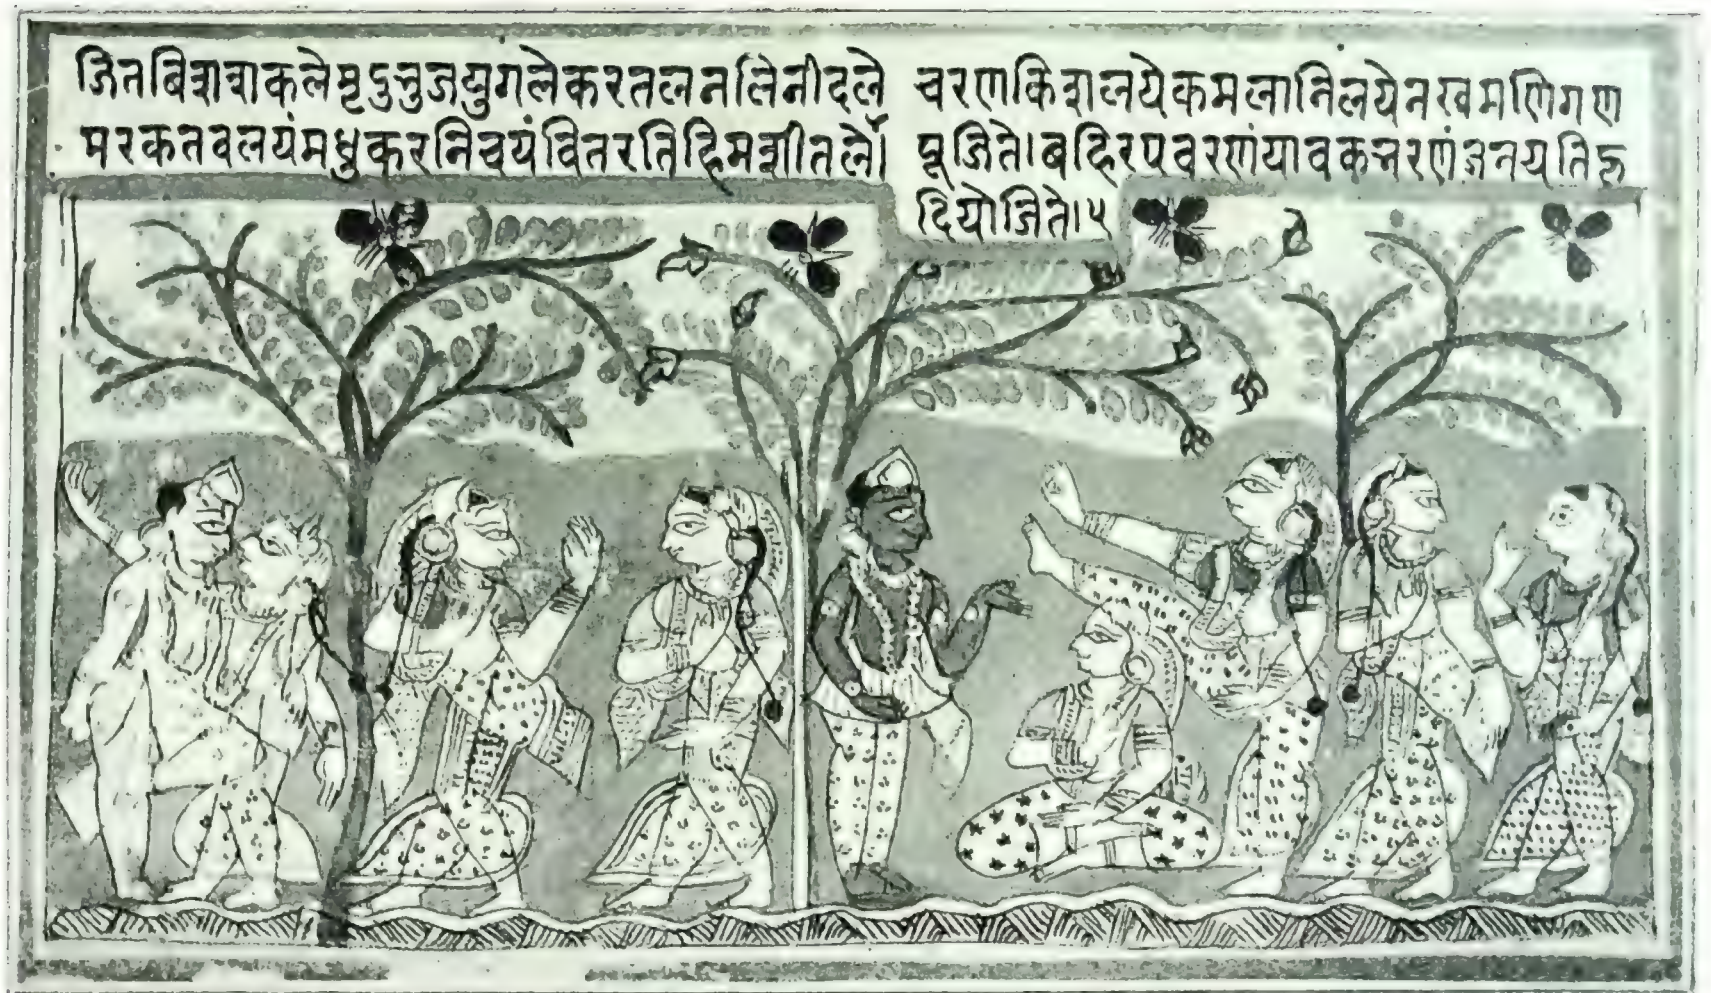 जितबिशशकलेमृदुभुजयुगलेकरतलनलिनीदले
मरकतवलयंमधुकरनिचयंवितरतिहिमशीतले
चरणकिशलयेकमलानिलयेनखमणिगण
पूजिते।बहिरपवरणंयावकभरणंजनयतिहृ
दियोजिते।५